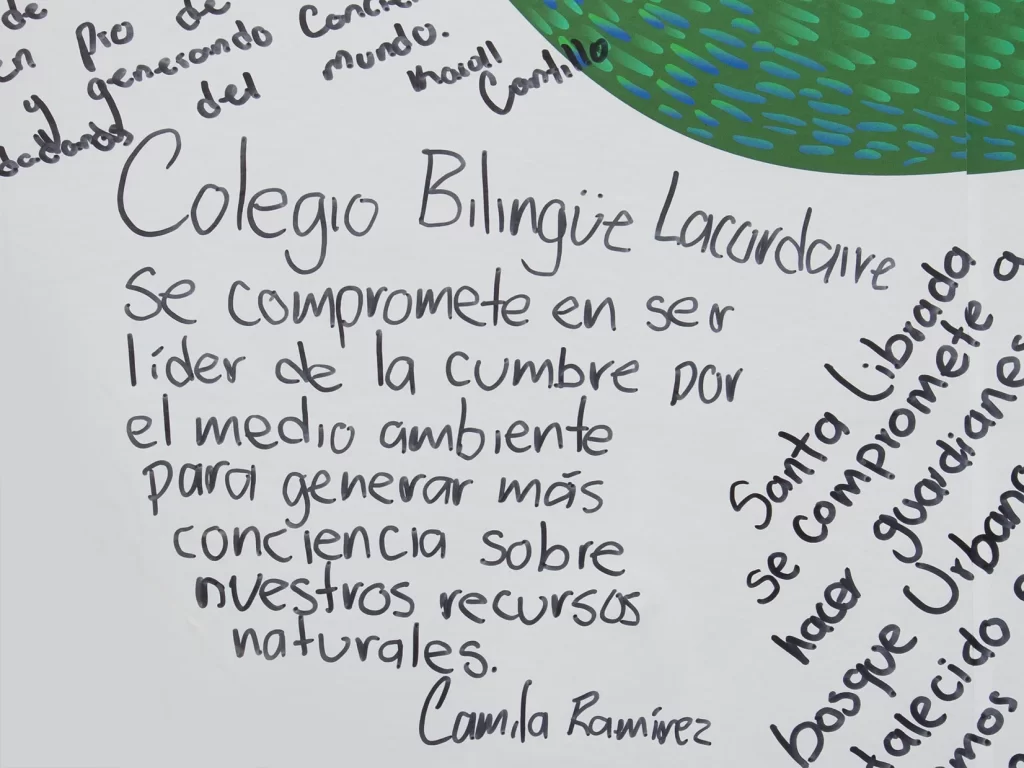 de
en pro de
y generando
del mundo.
Castillo
Colegio Bilingüe Lacordaire
se compromete en ser
líder de la cumbre por
el medio ambiente
para generar más
conciencia sobre
nuestros recursos
naturales.
Camila Ramírez
Santa Librada
se compromete a
hacer guardianes
bosque Urbano
talecido
mos